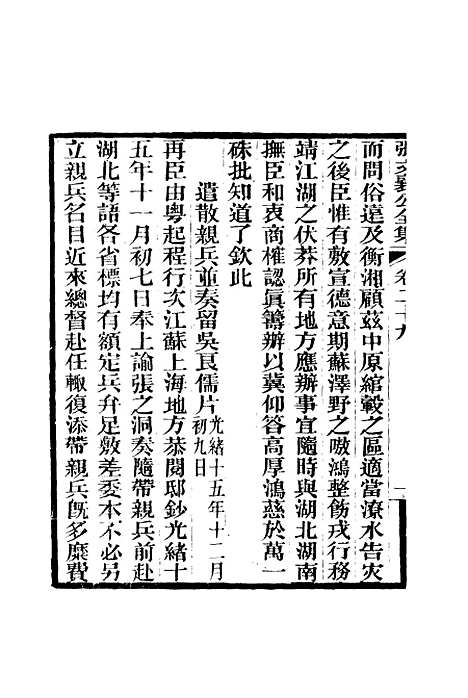 張文襄公全集 卷二十九 一
而問俗遠及衡湘顧茲中原綰轂之區適當潦水告災
之後臣惟有敷宣德意期蘇澤野之嗷鴻整飭戎行務
靖江湖之伏莽所有地方應辦事宜隨時與湖北湖南
撫臣和衷商榷認眞籌辦以冀仰答高厚鴻慈於萬一
硃批知道了欽此
遣散親兵並奏留吳良儒片 光緒十五年十二月初九日
再臣由粵起程行次江蘇上海地方恭閱邸鈔光緒十
五年十一月初七日奉上諭張之洞奏隨帶親兵前赴
湖北等語各省標均有額定兵弁足敷差委本不必另
立親兵名目近來總督赴任輙復添帶親兵既多糜費